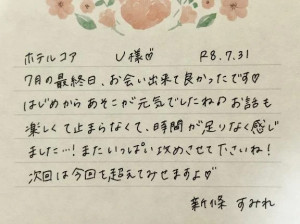 ホテルコア U様♡ R8.7.31
7月の最終日、お会い出来て良かったです♡
はじめからあそこが元気でしたね♪お話も
楽しくて止まらなくて、時間が足りなく感じ
ました…!またいっぱい攻めさせて下さいね!
次回は今回を超えてみせますよ♡
新條 すみれ